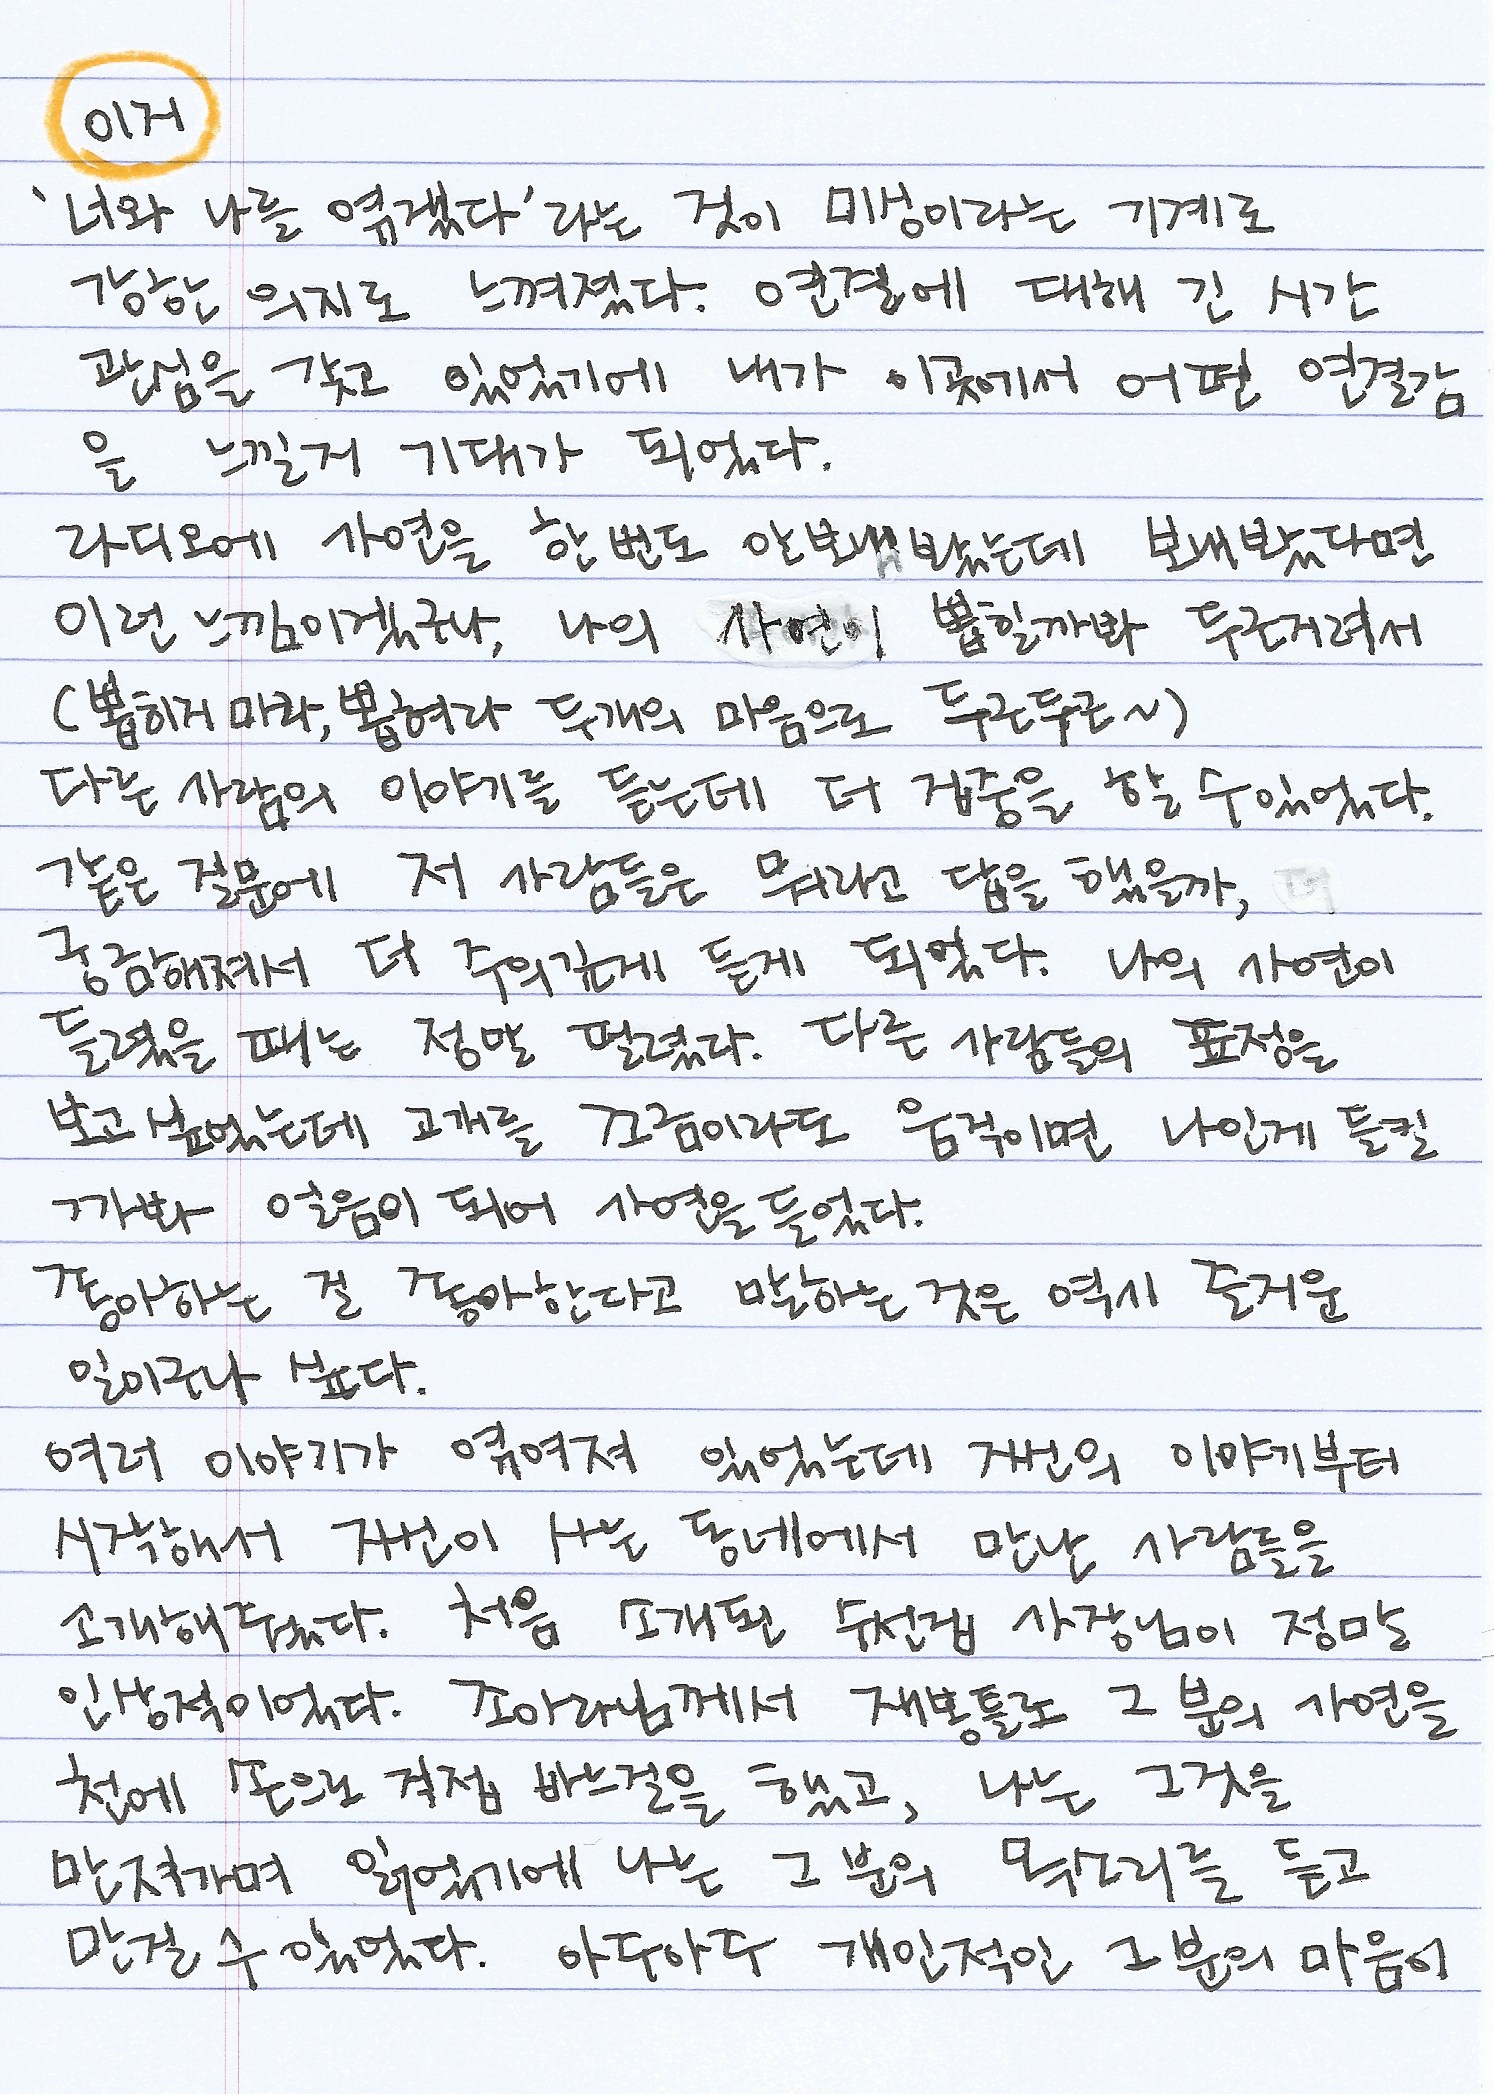 이거
'너와 나를 엮겠다'라는 것이 미싱이라는 기계로
강한 의지로 느껴졌다. 연결에 대해 긴 시간
관심을 갖고 있었기에 내가 이곳에서 어떤 연결감
을 느낄지 기대가 되었다.
라디오에 사연을 한번도 안보내봤는데 보내봤다면
이런 느낌이겠구나, 나의 사연이 뽑힐까봐 두근거려서
(뽑히지마라, 뽑혀라 두개의 마음으로 두근두근~)
다른 사람의 이야기를 듣는데 더 집중을 할 수 있었다.
같은 질문에 저 사람들은 뭐라고 답을 했을까,
궁금해져서 더 주의깊게 듣게 되었다. 나의 사연이
들렸을 때는 정말 떨렸다. 다른 사람들의 표정을
보고싶었는데 고개를 조금이라도 움직이면 나인게 들킬
까봐 얼음이 되어 사연을 들었다.
좋아하는 걸 좋아한다고 말하는 것은 역시 즐거운
일이구나 싶다.
여러 이야기가 엮여져 있었는데 자신의 이야기부터
시작해서 자신이 사는 동네에서 만난 사람들을
소개해주었다. 처음 소개된 수선집 사장님이 정말
인상적이었다. 조아라님께서 재봉틀로 그 분의 사연을
천에 손으로 직접 바느질을 했고, 나는 그것을
만져가며 읽었기에 나는 그 분의 목소리를 듣고
만질 수 있었다. 아주아주 개인적인 그 분의 마음이